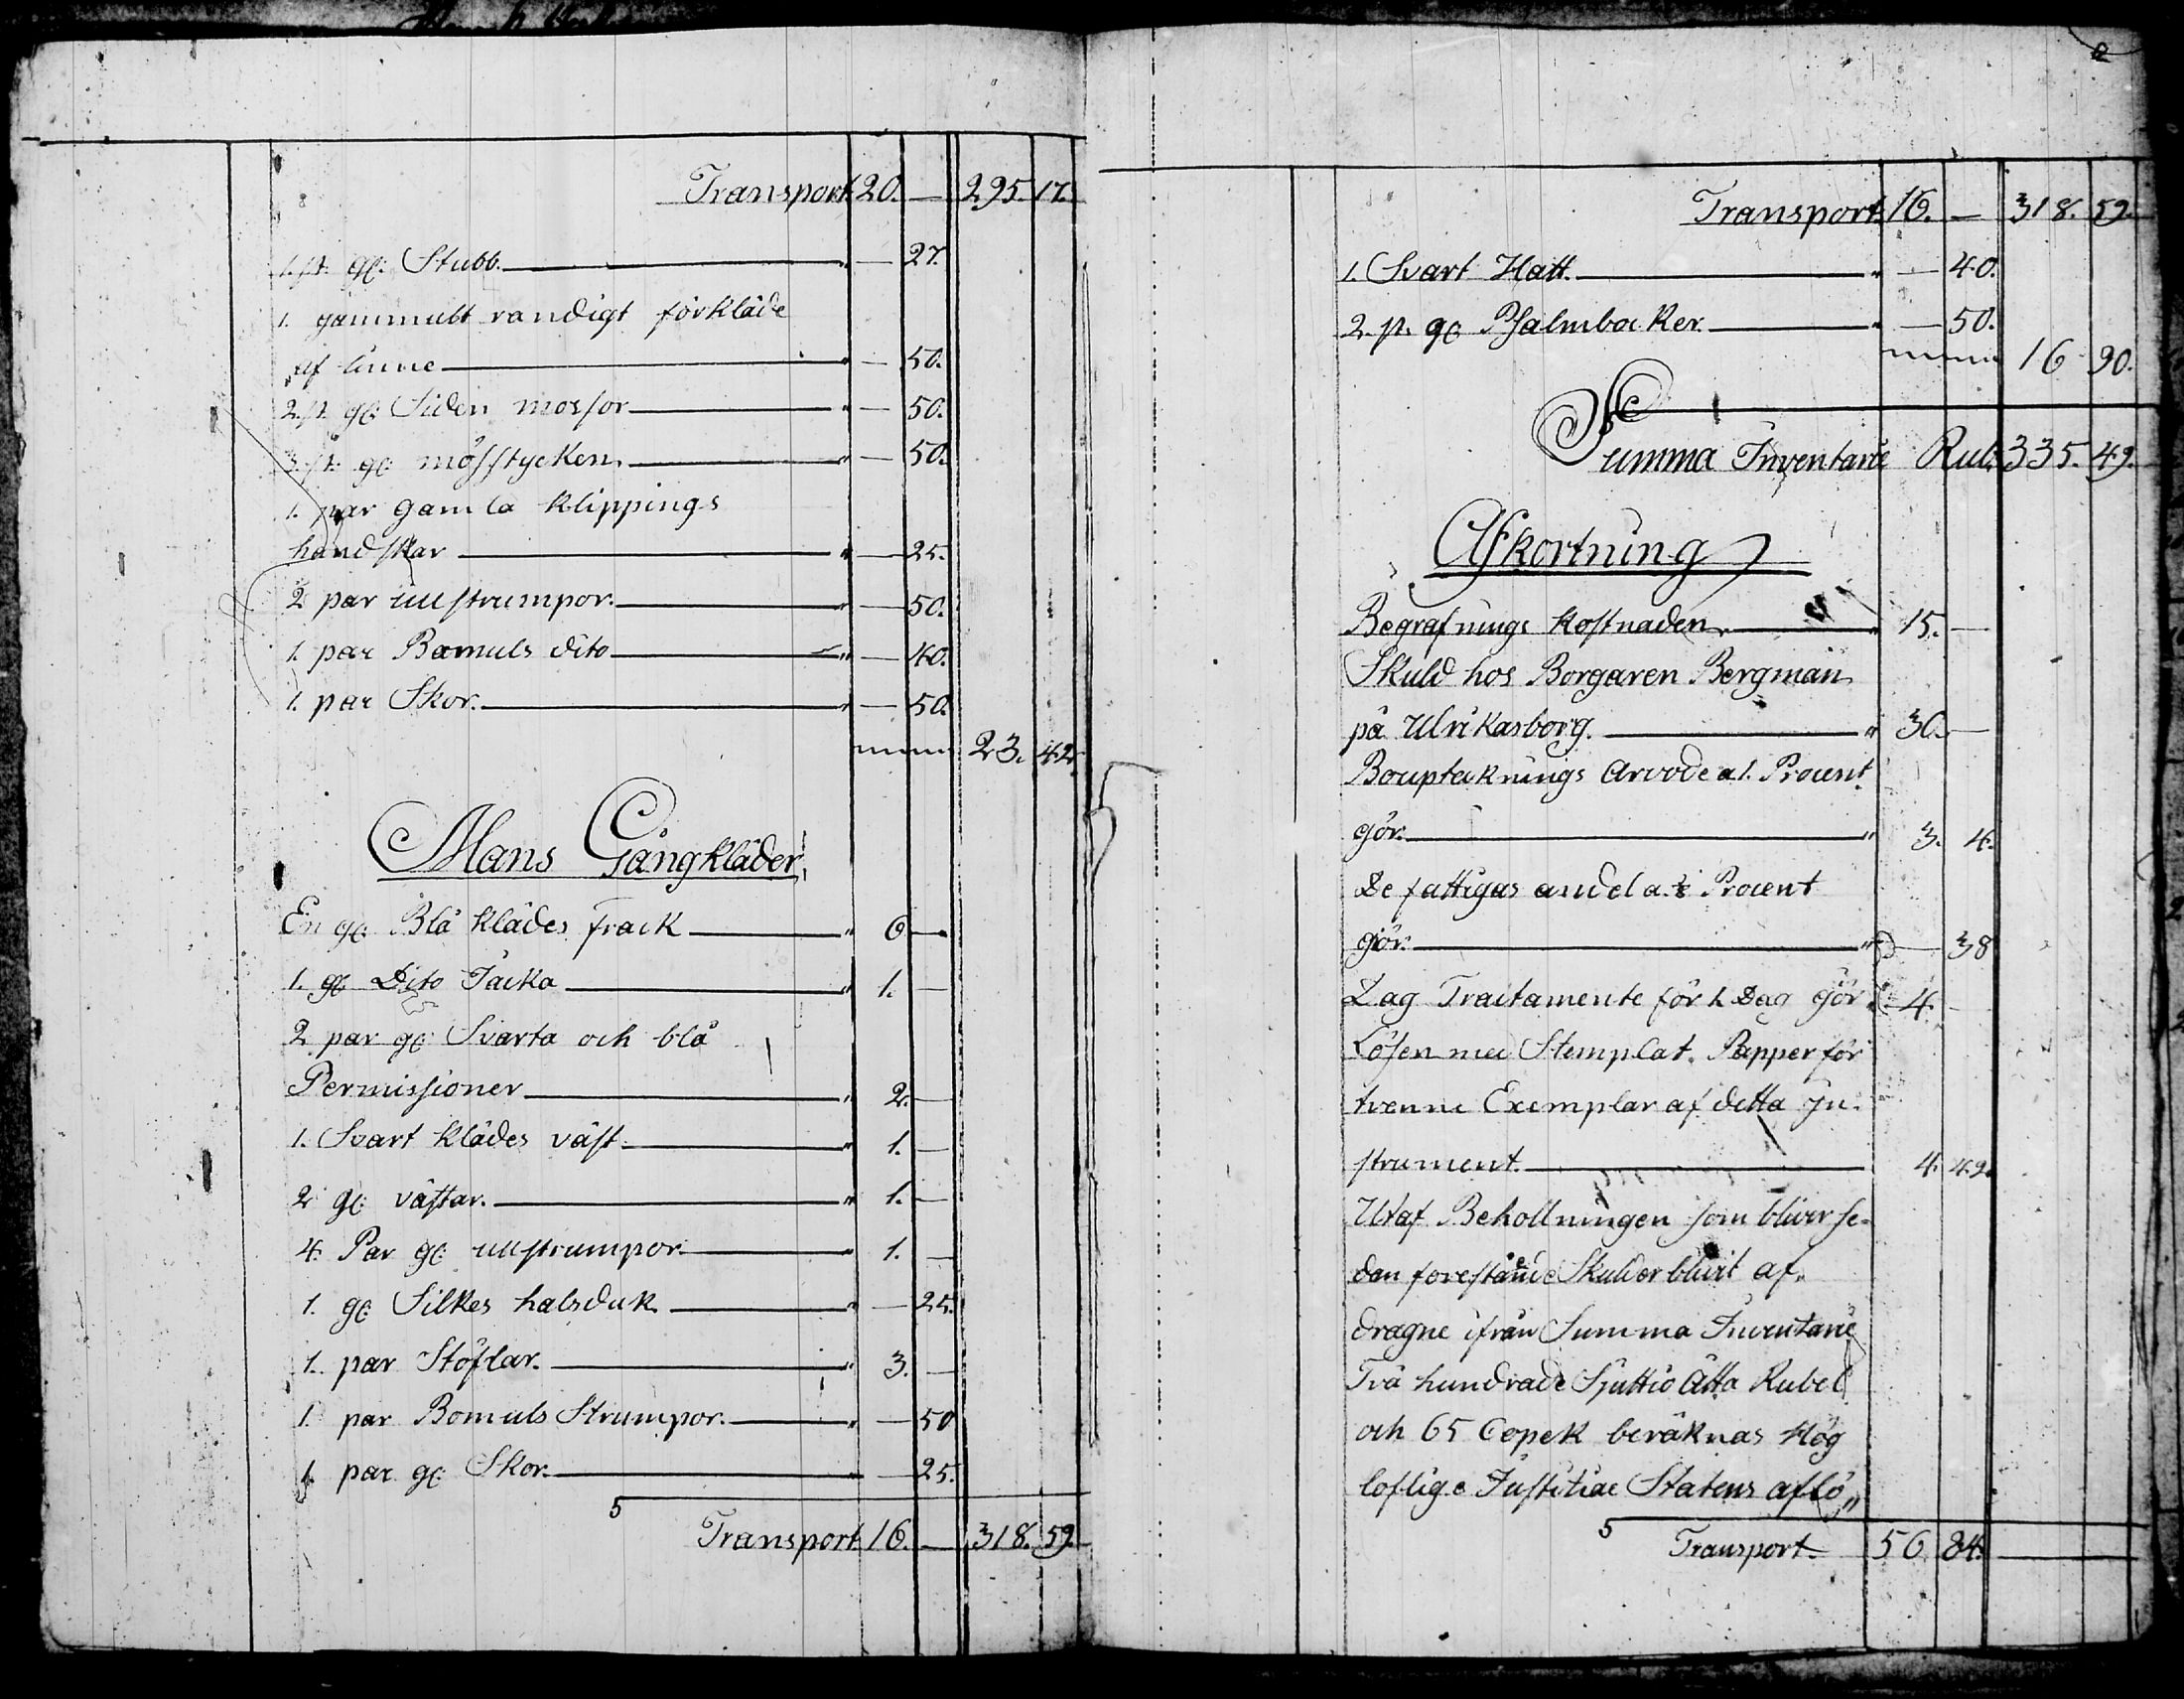 Transport 20. — 295. 17.
1. st. gl: Stubb. " — 27.
1. gammult randigt förkläde
af linne " — 50.
2. st. gl: Siden mössor " — 50.
3. st. gl: mösstycken. " — 50.
1. par gamla klippings
handskar " — 25.
2 par ullstrumpor. " — 50.
1. par Bomuls dito " — 40.
1. par Skor. " — 50.
23. 42.
Mans Gångkläder
En gl: Blå klädes frack " 6 —
1. gl: Dito Jacka " 1. —
2 par gl: Svarta och blå
Permissioner " 2. —
1. Svart klädes väst " 1. —
2 gl: västar. " 1. —
4. Par gl: ullstrumpor. " 1. —
1. gl: Silkes halsduk. " — 25.
1. par Stöflar. " 3. —
1. par Bomuls Strumpor. " — 50
1 par gl: Skor. — 25.
5
Transport 16. — 318. 59.
Transport. 16. — 318. 59.
1. Svart Hatt. " — 40.
2. st. gl: Psalmböcker. " — 50.
16 90.
Summa Inventarie Rub. 335. 49.
Afkortning
Begrafnings kostnaden " 15. —
Skuld hos Borgaren Bergman
på Ulrikasborg. " 30. —
Bouptecknings Arvode a 1. Procent
gör. " 3. 4.
De fattigas andel a. ⅛ Procent
gör. " — 38
Dag Tractamente för 1. Dag gör " 4. —
Lösen med Stemplat. Papper för
tvenne Exemplar af detta In-
strument. 4. 42.
Utaf Behollningen som bliver se-
dan forestående Skulder blivit af„
dragne ifrån Summa Inventarie
Två hundrade Sjuttio Åtta Rubel
och 65 Copek beräknas Hög
loflige Justitiae Statens aflö„
5
Transport. 56 84. —